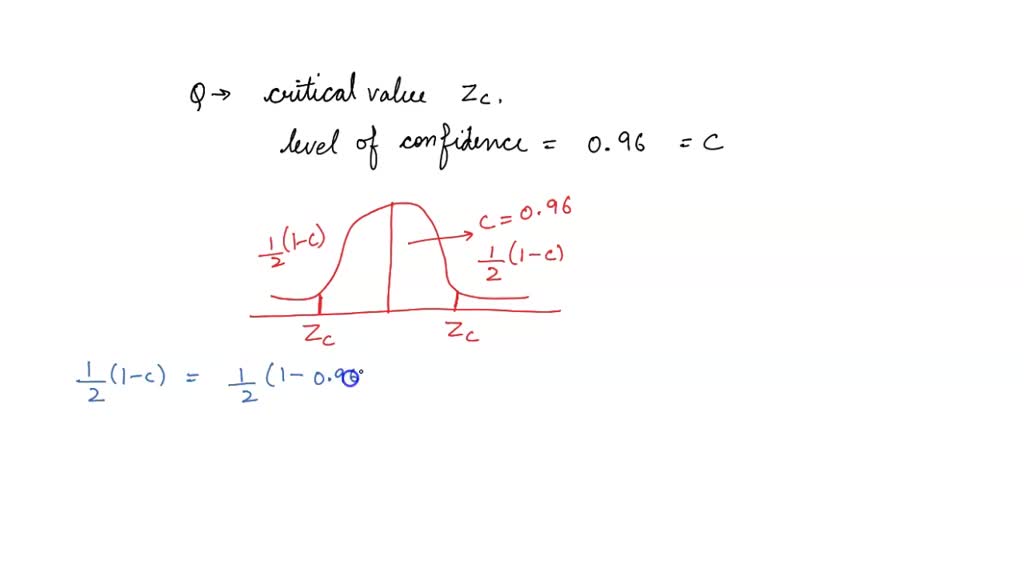 Q → critical value Zc.
level of confidence = 0.96 = C
C = 0.96
1/2 (1-c)
1/2 (1-c)
Zc
Zc
1/2 (1-c) = 1/2 (1- 0.96